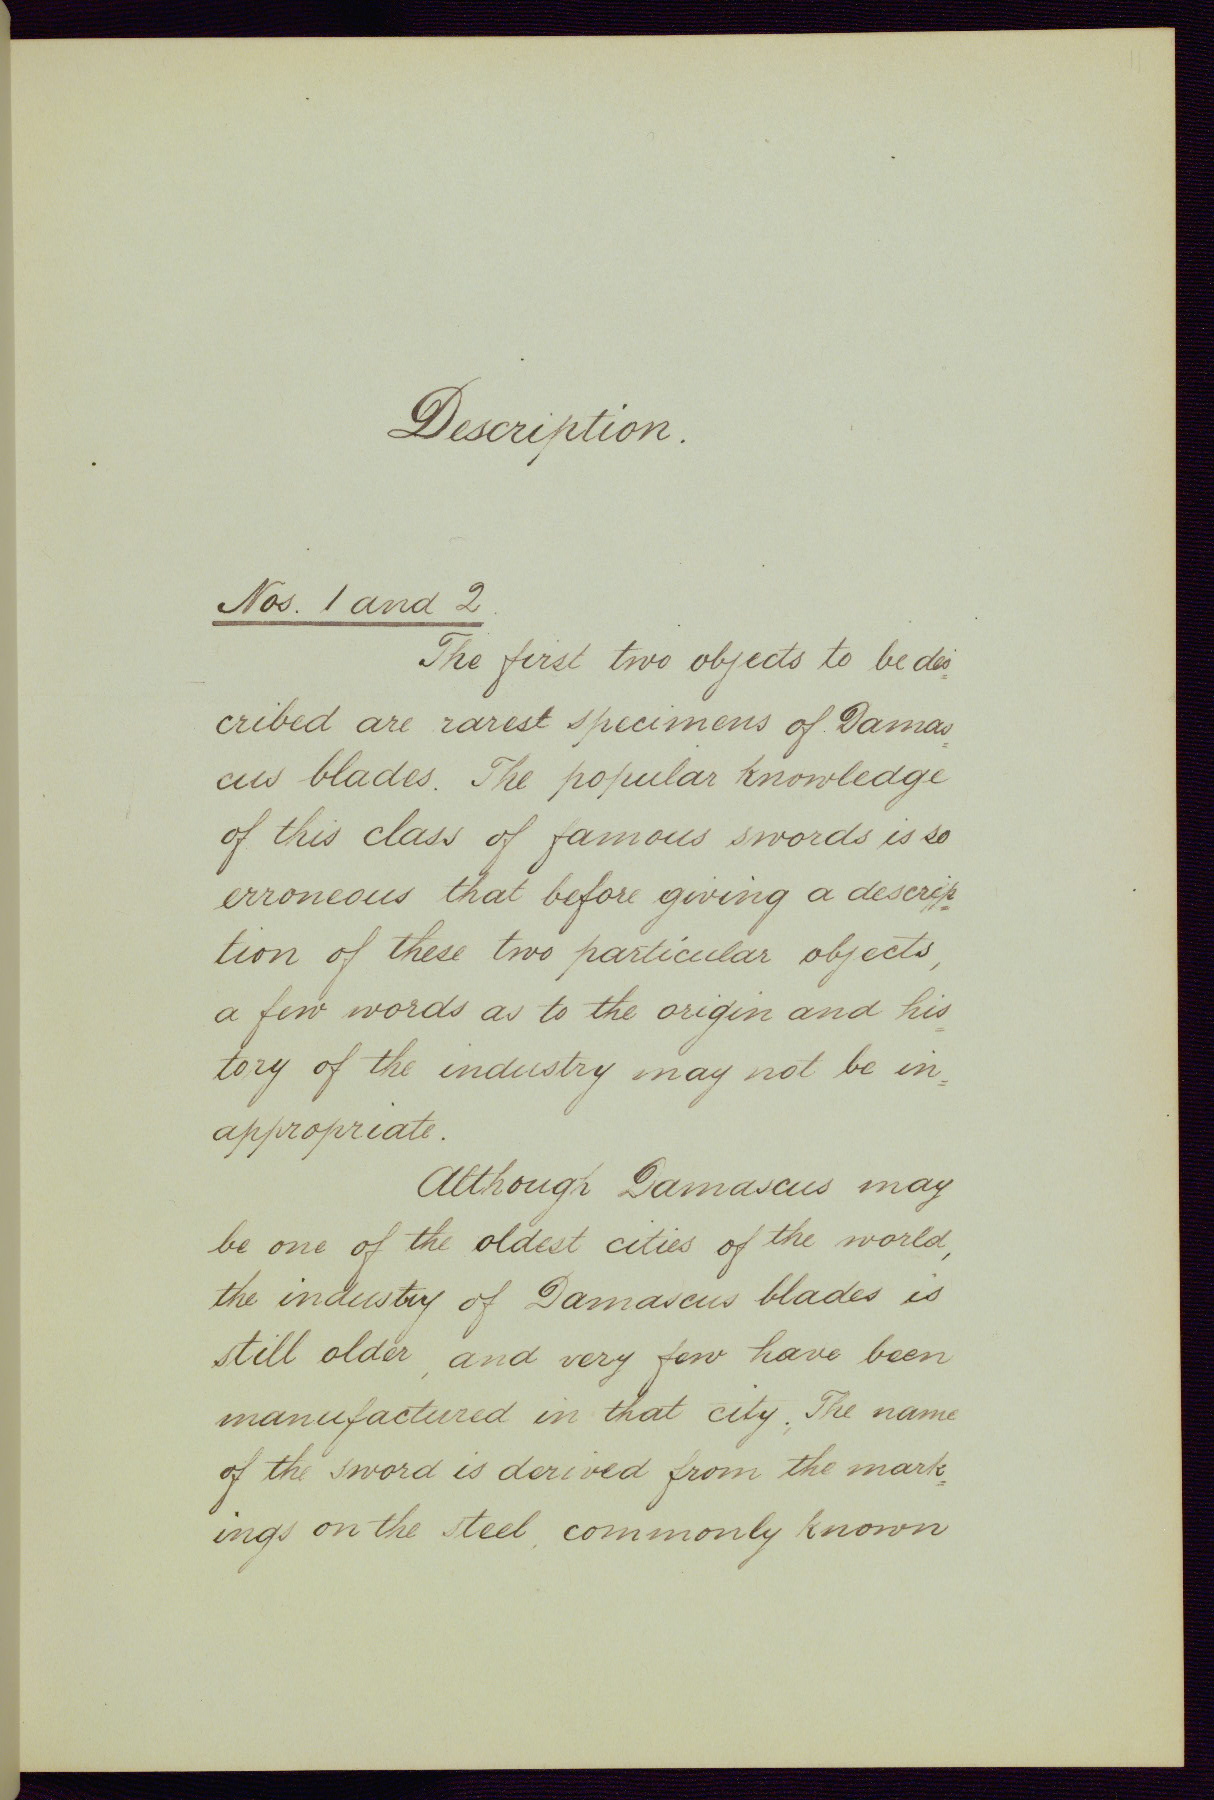 Description.
Nos. 1 and 2.
The first two objects to be des=
cribed are rarest specimens of Damas=
cus blades. The popular knowledge
of this class of famous swords is so
erroneous that before giving a descrip=
tion of these two particular objects,
a few words as to the origin and his=
tory of the industry may not be in=
appropriate.
Although Damascus may
be one of the oldest cities of the world,
the industry of Damascus blades is
still older, and very few have been
manufactured in that city. The name
of the sword is derived from the mark=
ings on the steel, commonly known